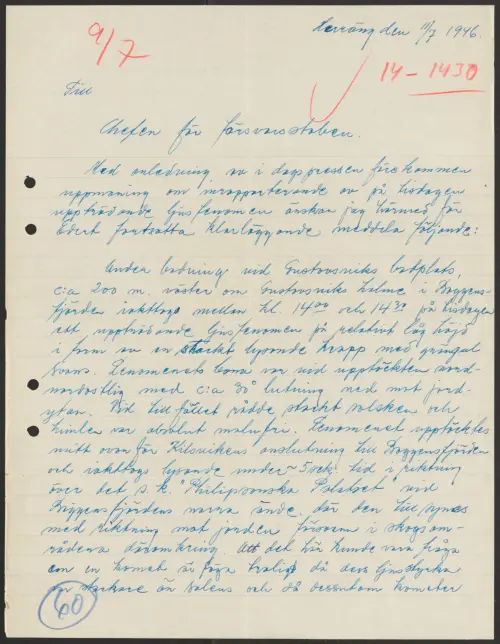 Herräng den 11/7 1946.
9/7
14 – 1430
Till
Chefen för försvarsstaben.
Med anledning av i dagspressen förekommen
uppmaning om inrapporterande av på tisdagen
uppträdande ljusfenomen önskar jag härmed för
Edert fortsatta klarläggande meddela följande:
Under badning vid Gustavsviks badplats,
c:a 200 m. väster om Gustavsviks holme i Baggens-
fjärden iakttogs mellan kl. 14 00 och 14 30 på tisdagen
ett uppträdande ljusfenomen på relativt låg höjd
i form av en starkt lysande kropp med grüngul
svans. Fenomenets bana var vid upptäckten nord-
nordostlig med c:a 30° lutning ned mot jord-
ytan. Vid tillfället rådde starkt solsken och
himlen var absolut molnfri. Fenomenet upptäcktes
mitt ovanför Kilsvikens anslutning till Baggensfjärden
och iakttogs lysande under ~ 5 sek. tid i riktning
över det s.k. "Philipsonska Palatset" vid
Baggensfjärdens norra ände, där den till synes
med riktning mot jorden försvann i skogsom-
rådena däromkring. Att det här kunde vara fråga
om en komet är föga troligt då dess ljusstyrka
var starkare än solens och då dessutom kometer
60